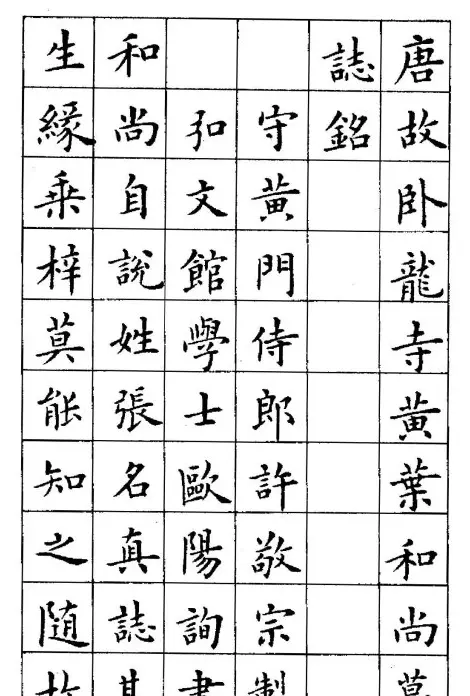 唐故卧龍寺黃葉和尚墓
誌銘
守黃門侍郎許敬宗製
弘文館學士歐陽詢書
和尚自說姓張名真誌其
生緣乗梓莫能知之隨